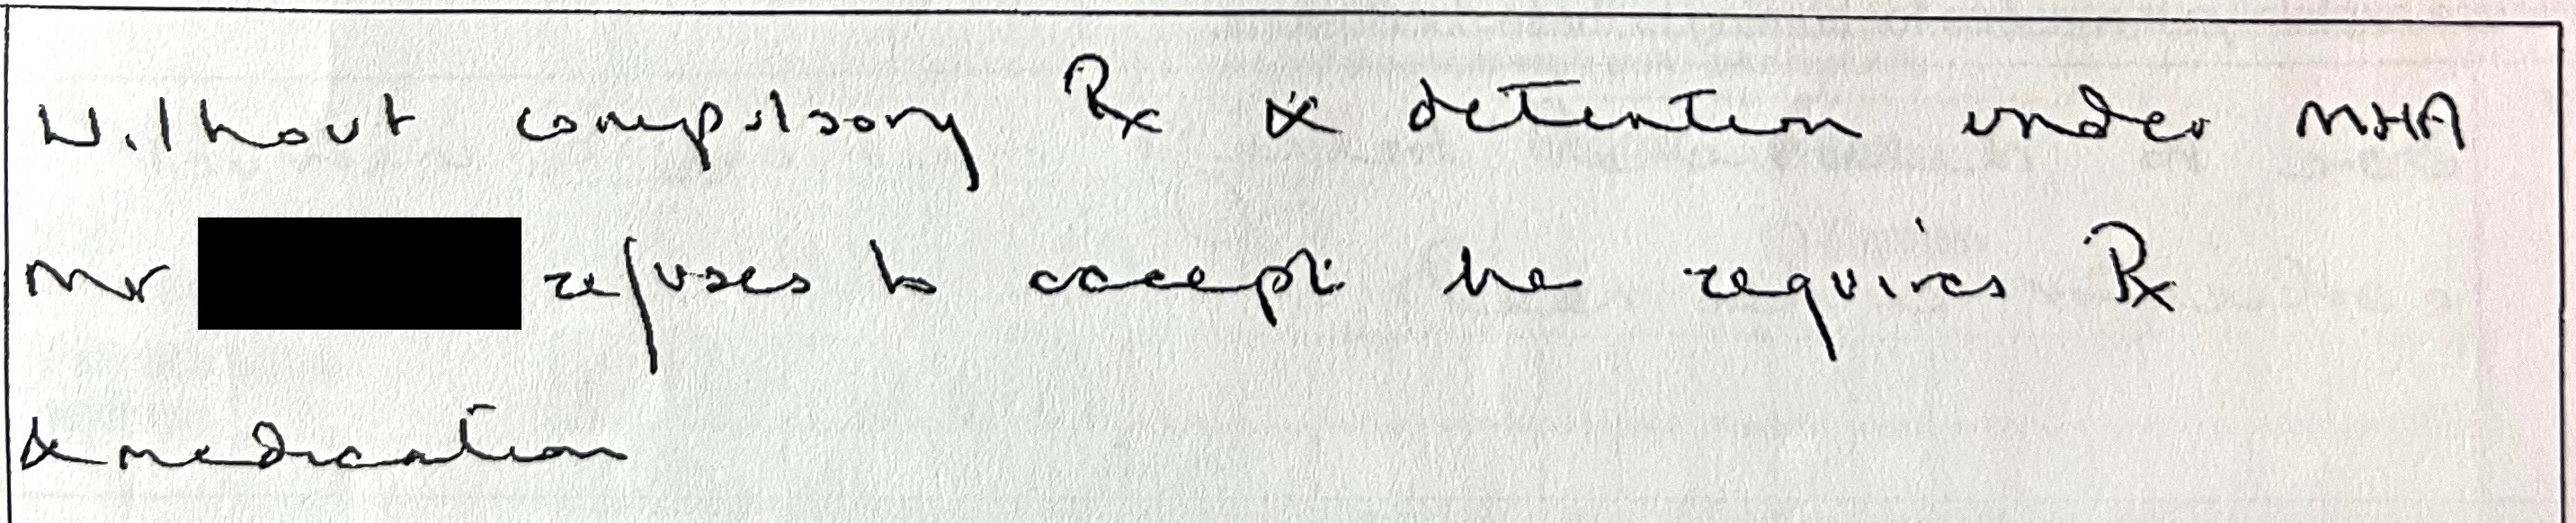 Without compulsory Rx & detention under MHA
Mr refuses to accept he requires Rx
& medication